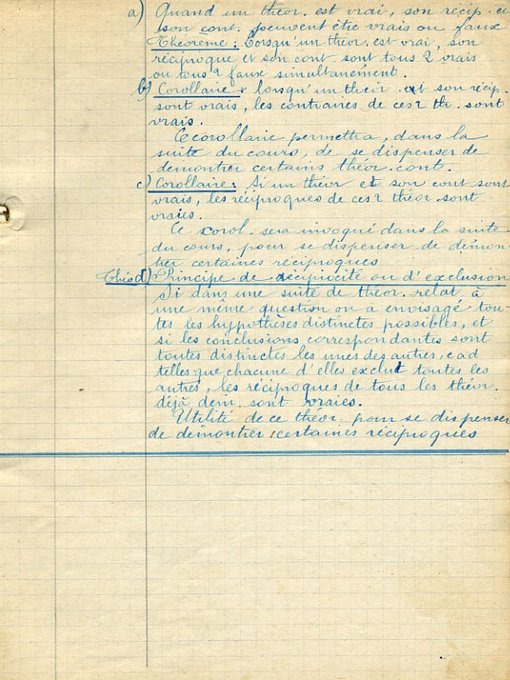 a) Quand un théor. est vrai, son récip. et
son cont. peuvent être vrais ou faux
Théorème : Lorsqu'un théor. est vrai, son
réciproque et son cont. sont tous 2 vrais
ou tous 2 faux simultanement.
b) Corollaire : lorsqu'un theor. et son récip.
sont vrais, les contraires de ces 2 th. sont
vrais.
Ce corollaire permettra, dans la
suite du cours, de se dispenser de
demontrer certains théor. cont.
c) Corollaire : Si un théor et son cont sont
vrais, les réciproques de ces 2 théor. sont
vraies.
Ce corol. sera invoqué dans la suite
du cours, pour se dispenser de démon-
trer certaines réciproques
Théo d) Principe de réciprocité ou d'exclusion
Si dans une suite de théor. relat. à
une même question on a envisagé tou-
tes les hypothèses distinctes possibles, et
si les conclusions correspondantes sont
toutes distinctes les unes des autres, c a d
telles que chacune d'elles exclut toutes les
autres, les réciproques de tous les théor.
déjà dém. sont vraies.
Utilité de ce théor. pour se dispenser
de démontrer certaines réciproques